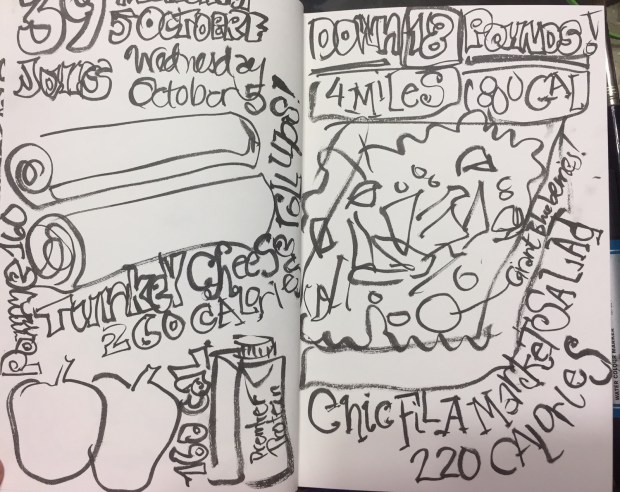 39
5 OCTOBER
Wednesday
October 5
ROLL UPS!
Turnkey Cheese
260 CALORI
160
160 CAL
Premier
Protein
DOWN 18 POUNDS!
4 MILES
Giant Blueberries!
Chic Fil A Market SALAD
220 CALORIES